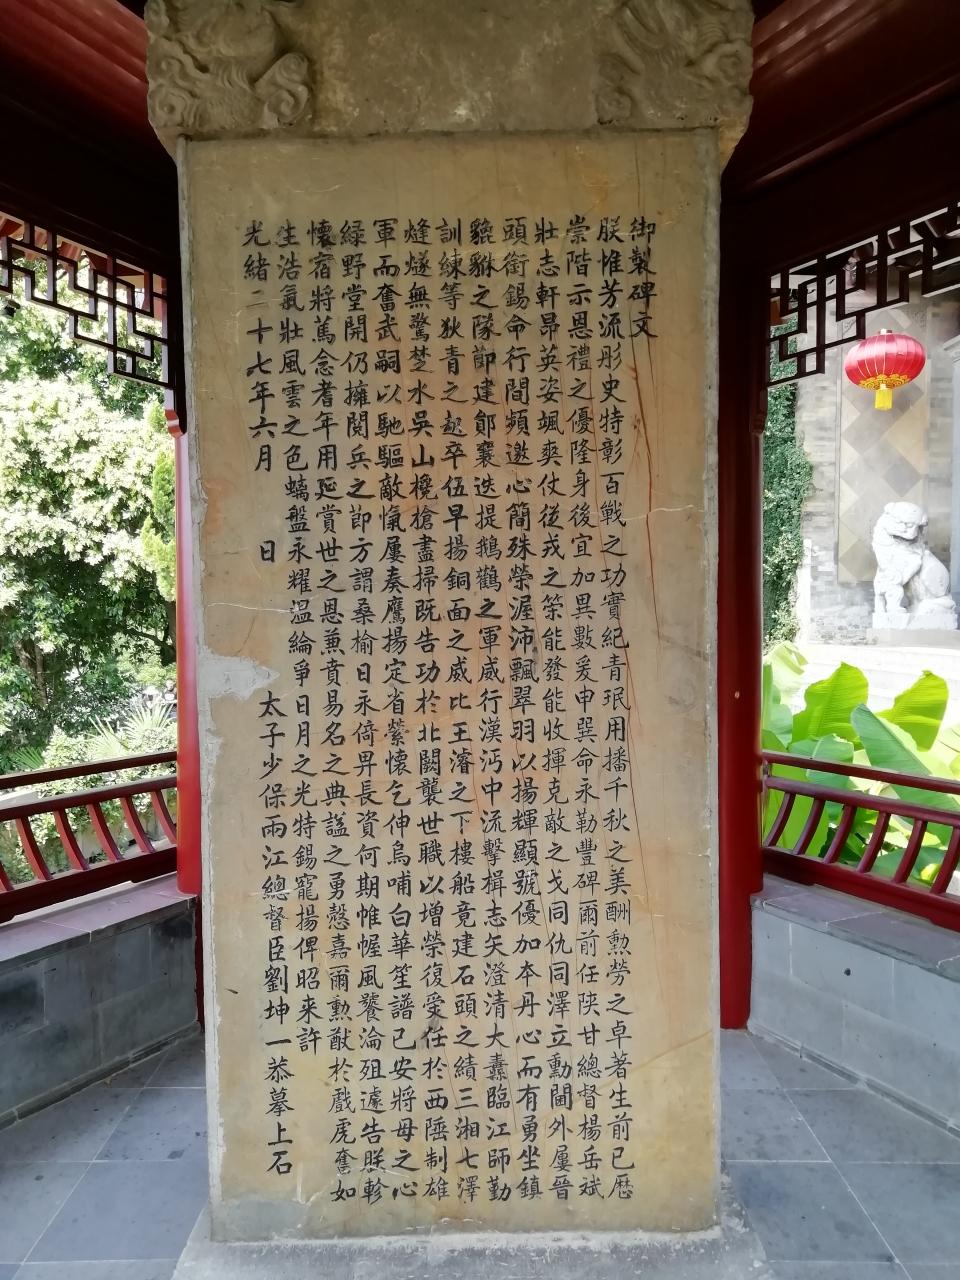 御製碑文
朕惟芳流彤史特彰百戰之功實紀青珉用播千秋之美酬勲勞之卓著生前已歷
崇階示恩禮之優隆身後宜加異數爰申巽命永勒豐碑爾前任陝甘總督楊岳斌
壯志軒昂英姿颯爽仗從戎之䇿能發能收揮克敵之戈同仇同澤立勳閫外屢晉
頭銜錫命行間頻邀心簡殊榮渥沛飄翠羽以揚輝顯號優加本丹心而有勇坐鎮
貔貅之隊節建鄖襄迭提鵝鸛之軍威行漢沔中流擊楫志矢澄清大纛臨江師勤
訓練等狄青之起卒伍早揚銅面之威比王濬之下樓船竟建石頭之績三湘七澤
烽燧無驚楚水吳山欃槍盡掃既告功於北闕襲世職以增榮復受任於西陲制雄
軍而奮武嗣以馳驅敵愾屢奏鷹揚定省縈懷乞伸烏哺白華笙譜已安將母之心
綠野堂開仍擁閱兵之節方謂桑榆日永倚畀長資何期帷幄風飇淪殂遽告朕軫
懷宿將篤念耆年用延賞世之恩兼賁易名之典謚之勇慤嘉爾勲猷於戲虎奮如
生浩氣壯風雲之色螭盤永耀溫綸爭日月之光特錫寵揚俾昭来許
光緒二十七年六月 日 太子少保兩江總督臣劉坤一恭摹上石